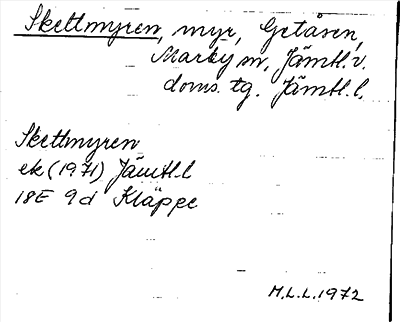 Skettmyren, myr, Getåsen,
Marby sn, Jämtl. v.
doms. tg. Jämtl. l.
Skettmyren
ek (1971) Jämtl. l
18E 9d Kläppe
M.L.L. 1972